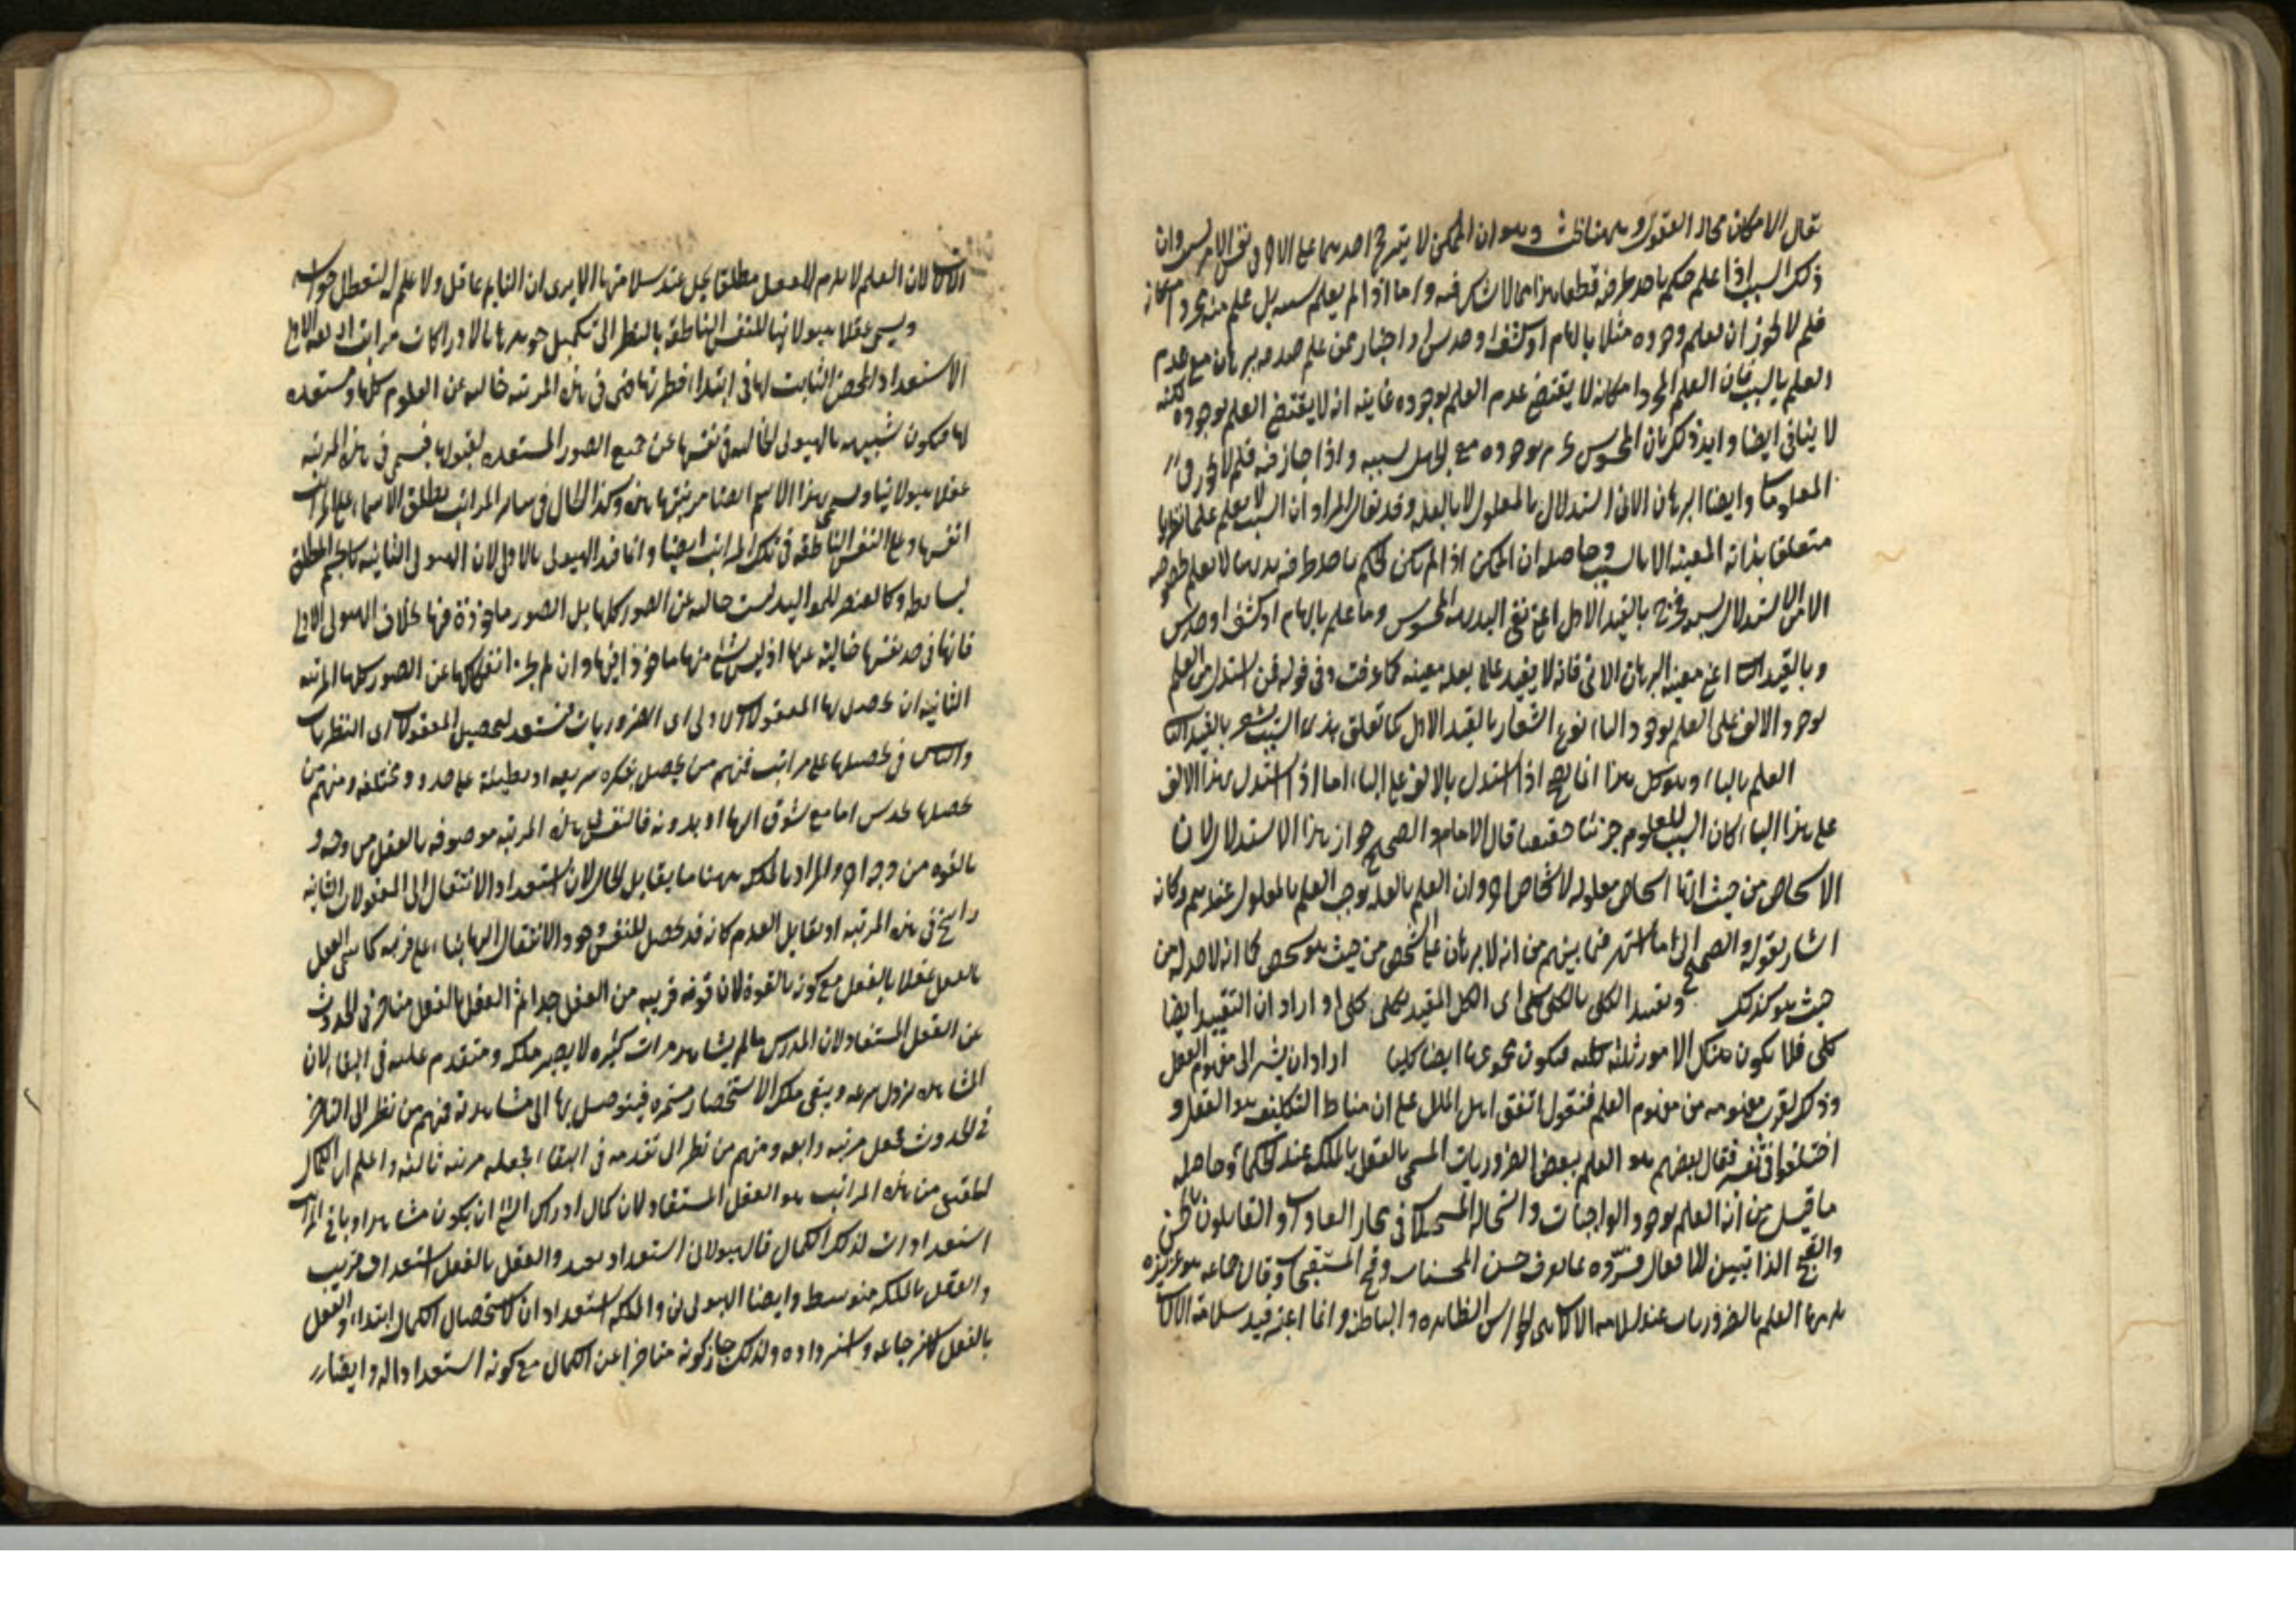 يقال الامكان محال العقول وههنا بحث وهو ان الممكن لا يترجح احدهما على الاخر في نفس الامر وان
ذلك السبب اذا علم حكم باحد طرفيه قطعا هذا مما لا شك فيه واما اذا لم يعلم سببه بل علم منه مجرد امكانه
فلم لا يجوز ان يعلم وجوده مثلا بالهام او كشف او حدس او اخبار عمن علم صدقه ببرهان مع عدم
العلم بالسبب فان العلم بمجرد امكانه لا يقتضي عدم العلم بوجوده غايته انه لا يقتضي العلم بوجوده لكنه
لا ينافي ايضا وايد ذلك بان المحسوس يجزم بوجوده مع الجهل بسببه واذا جاز فيه فلم لا يجوز في
المعلومات وايضا البرهان الاني استدلال بالمعلول لا بالعلة وقد يقال المراد ان السبب لا يعلم علما نظريا
متعلقا بذاته المعينة الا بالسبب وحاصله ان الممكن اذا لم يكن الحكم باحد طرفيه بديهيا لا يعلم بخصوصه
الا من الاستدلال بسببه فخرج بالقيد الاول اعني نفي البديهة المحسوس وما علم بالهام او كشف او حدس
وبالقيد الثاني اعني معينة البرهان الاني فانه لا يفيد علما بعلة معينة كما عرفت وفي قوله فمن استدل من العلم
بوجود الالف على العلم بوجود الباء نوع اشعار بالقيد الاول كما تعلق بذي السبب يشعر بالقيد الثاني
العلم بالباء وهو كلي هذا انما يصح اذا استدل بالالف على الباء اما اذا استدل بهذا الالف
على هذا الباء كان السبب للمعلوم جزئيا حقيقيا قال الامام والصحيح جواز هذا الاستدلال لان
الاشخاص من حيث انها اشخاص معلولة لاشخاص اخر وان العلم بالعلة يوجب العلم بالمعلول عندهم وكانه
اشار بقوله والصحيح الى ما اشتهر فيما بينهم من انه لا برهان على الشخص من حيث هو شخص كما انه لا حد له من
حيث هو كذلك وتقييد الكلي بالكلي كلي اي الكل المقيد بكلي كلي او اراد ان التقييد ايضا
كلي فلا يكون هناك الامور ثلثة كلية فيكون مجموعها ايضا كليا اراد ان يشير الى مفهوم العقل
وذلك لقرب مفهومه من مفهوم العلم فنقول اتفق اهل الملل على ان مناط التكليف هو العقل و
اختلفوا في تفسيره فقال بعضهم هو العلم ببعض الضروريات المسمى بالعقل بالملكة عند الحكماء وحاصله
ما قيل من انه العلم بوجود الواجبات واستحالة المستحيلات في مجاري العادات والقائلون بالحسن
والقبح الذاتيين للافعال فسروه بما يعرف حسن المحسنات وقبح المستقبحات وقال جماعة هو غريزة
يلزمها العلم بالضروريات عند سلامة الالات اي الحواس الظاهرة والباطنة وانما اعتبر قيد سلامة الالات
الالات لان العلم لا يلزم العقل مطلقا بل عند سلامتها الا يرى ان النائم عاقل ولا علم له لتعطل حواسه
ويسمى عقلا هيولانيا للنفس الناطقة بالنظر الى تكميل جوهرها بالادراكات مراتب اربعة الاولى
الاستعداد المحض الثابت لها في ابتداء فطرتها فهي في هذه المرتبة خالية عن العلوم كلها مستعدة
لها فيكون شبيهة بالهيولى الخالية في نفسها عن جميع الصور المستعدة لقبولها فيسمى في هذه المرتبة
عقلا هيولانيا ويسمى بهذا الاسم ايضا مرتبتها هذه وكذا الحال في سائر المراتب يطلق الاسماء على المراتب
انفسها وعلى النفس الناطقة في تلك المراتب ايضا وانما قيد الهيولى بالاولى لان الهيولى الثانية كالجسم المطلق
لبسائطه وكالعنصر للمواليد ليست خالية عن الصور كلها بل الصور ماخوذة فيها بخلاف الهيولى الاولى
فانها في حد نفسها خالية عنها اذ ليس شيء منها ماخوذا فيها وان لم يجز انفكاكها عن الصور كلها المرتبة
الثانية ان يحصل لها المعقولات الاولى اي الضروريات فتستعد لتحصيل المعقولات اي النظريات
والناس في تحصيلها على مراتب فمنهم من يحصل بفكره سريعة او بطيئة على حدود مختلفة ومنهم من
يحصلها بحدس اما مع شوق اليها او بدونه فالنفس في هذه المرتبة موصوفة بالعقل من وجه و
بالقوة من وجه اخر والمراد بالملكة ههنا ما يقابل الحال لان استعداد الانتقال الى المعقولات الثانية
راسخ في هذه المرتبة او يقابل العدم كانه قد يحصل للنفس وجود الانتقال اليها بناء على قربه كما سمى العقل
بالفعل عقلا بالفعل مع كونه بالقوة لان قوته قريبة من الفعل جدا ثم العقل بالفعل متاخر في الحدوث
عن العقل المستفاد لان المدرس ما لم يشاهد مرات كثيرة لا يصير ملكة ومتقدم عليه في البقاء لان
المشاهدة تزول بسرعة ويبقى ملكة الاستحضار مستمرة فيتوصل بها الى مشاهدته فمنهم من نظر الى التاخر
في الحدوث فجعل مرتبة رابعة ومنهم من نظر الى تقدمه في البقاء فجعله مرتبة ثالثة واعلم ان الكمال
الحقيقي من هذه المراتب هو العقل المستفاد لان كمال ادراك الشيء ان يكون مشاهدا وباقي المراتب
استعدادات لذلك الكمال فالهيولاني استعداد بعيد والعقل بالفعل استعداد قريب
والعقل بالملكة متوسط وايضا الهيولاني والملكة استعدادان لاستحصال الكمال ابتداء والعقل
بالفعل لاسترجاعه واسترداده ولذلك جاز كونه متاخرا عن الكمال مع كونه استعدادا له وايضا